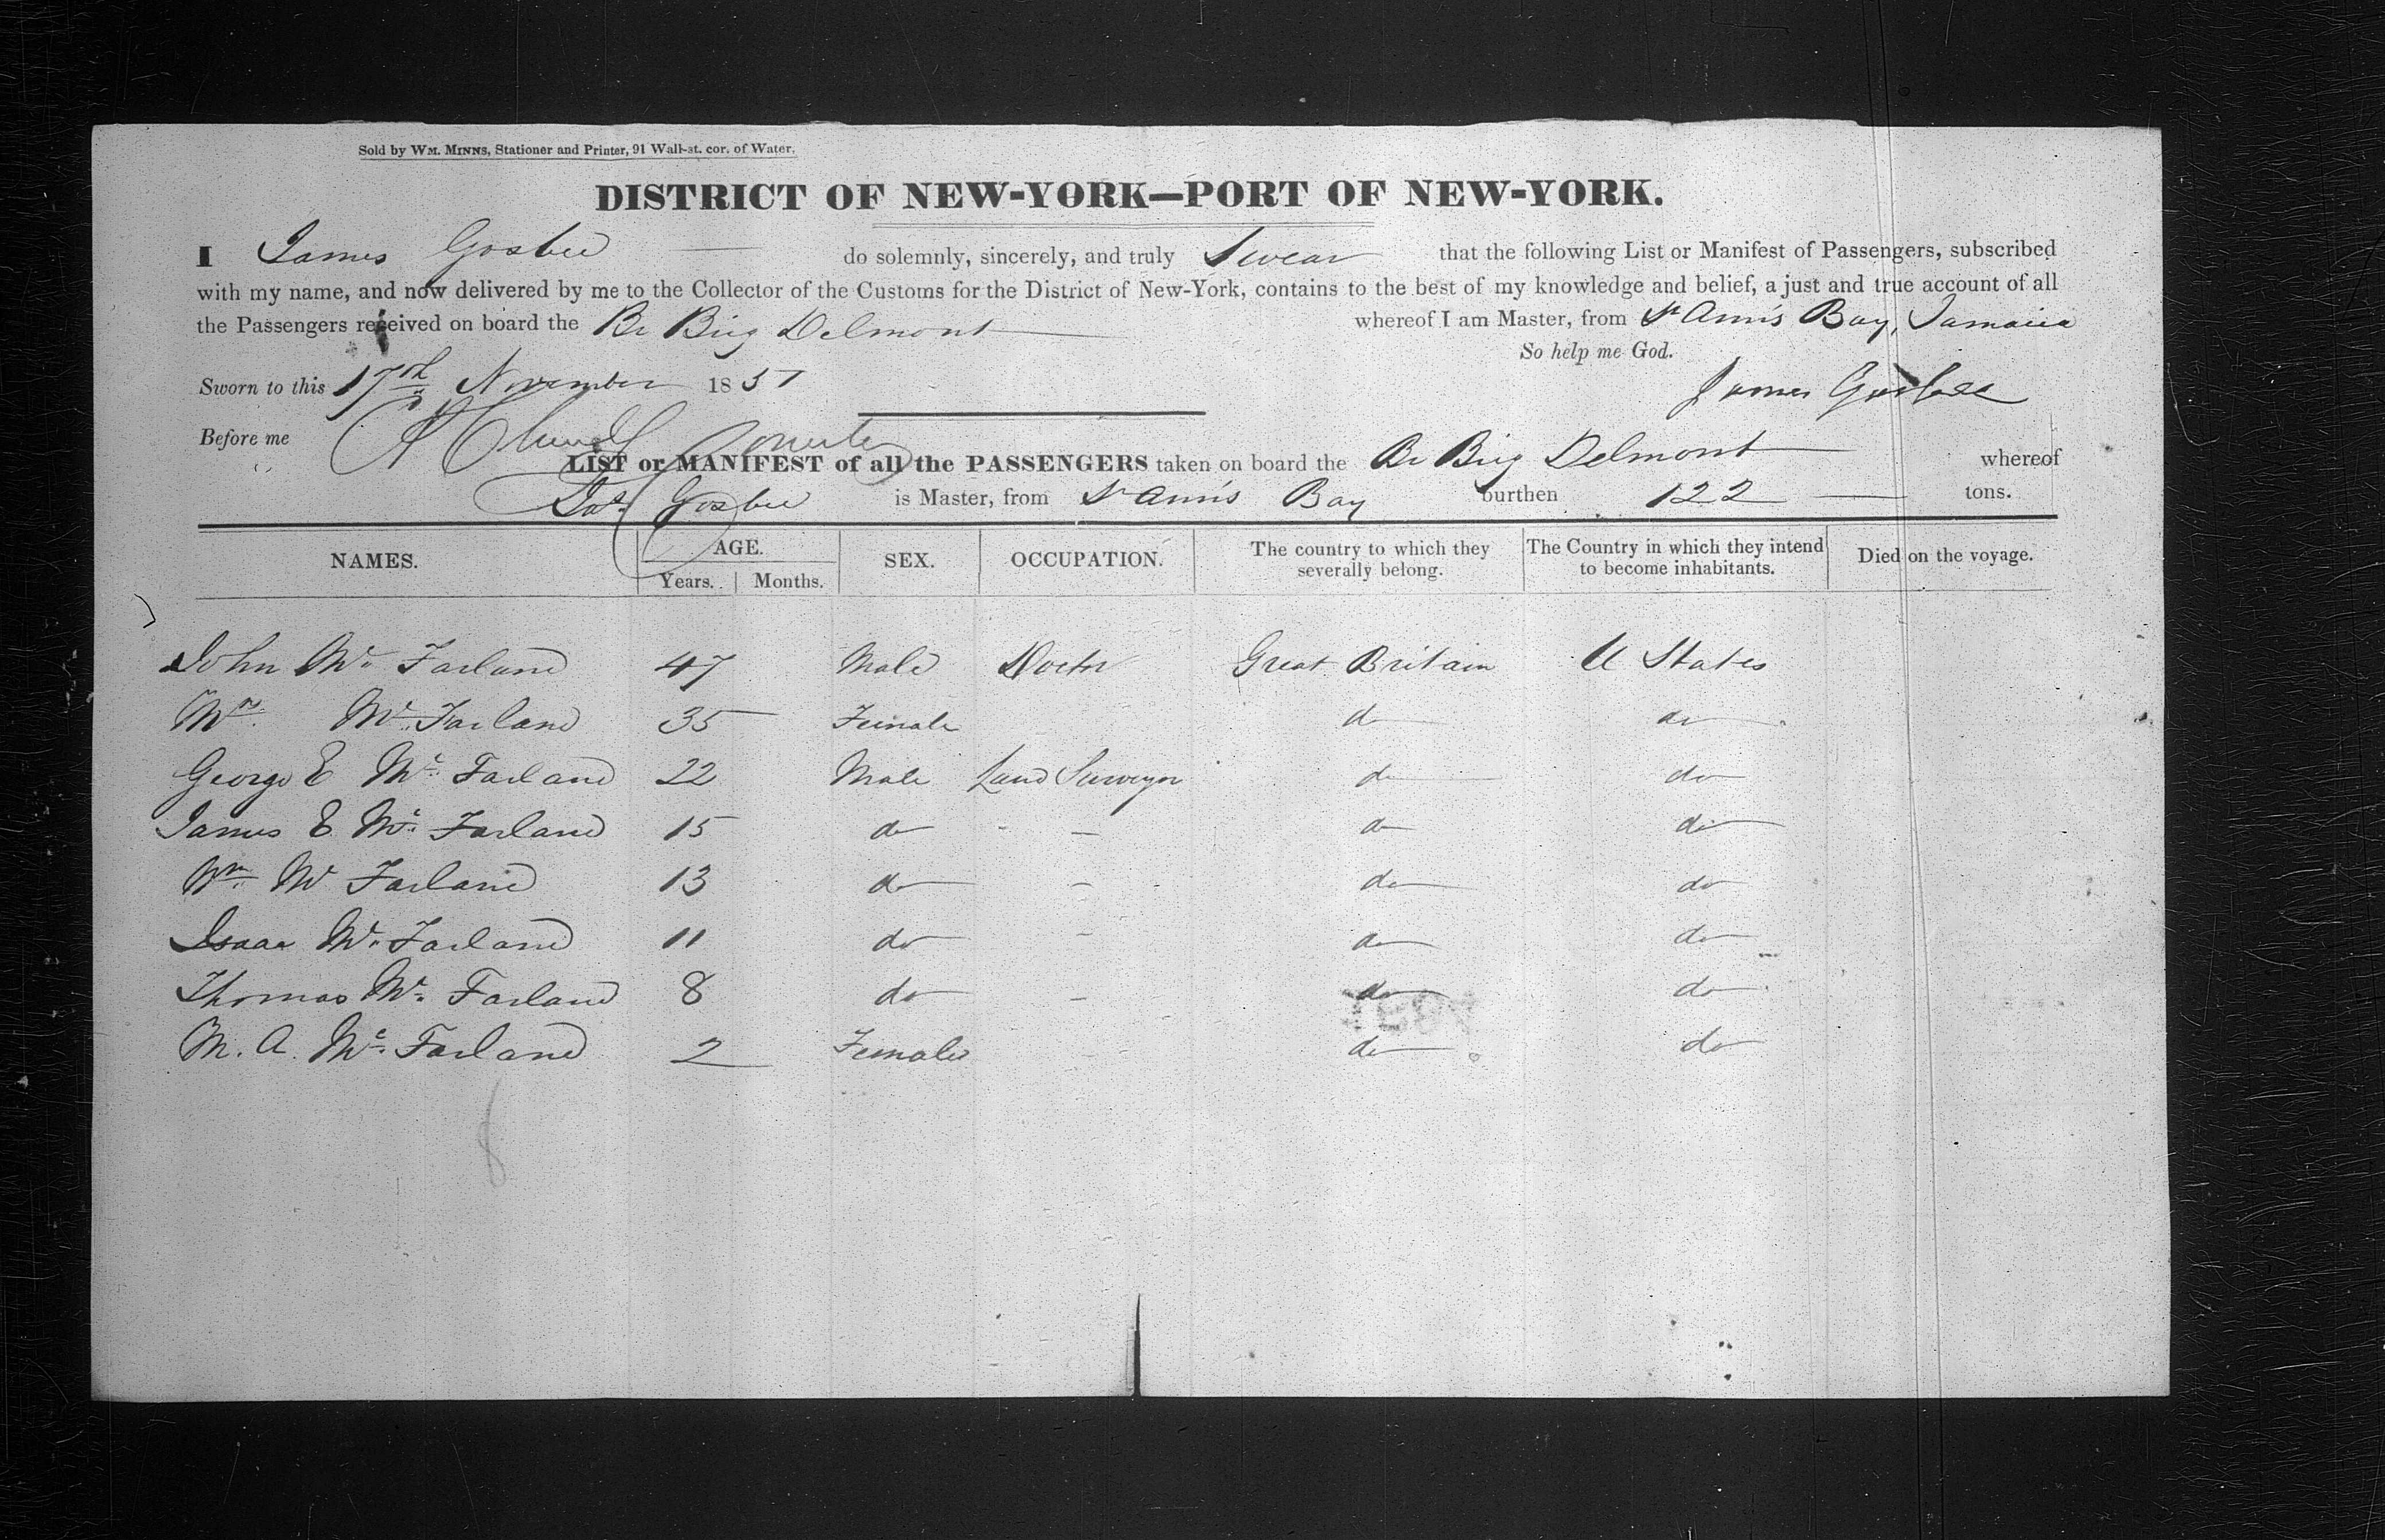 Sold by WM. MINNS, Stationer and Printer, 91 Wall-st. cor. of Water.
DISTRICT OF NEW-YORK—PORT OF NEW-YORK.
I James Gosbee do solemnly, sincerely, and truly Swear that the following List or Manifest of Passengers, subscribed
with my name, and now delivered by me to the Collector of the Customs for the District of New-York, contains to the best of my knowledge and belief, a just and true account of all
the Passengers received on board the Br Brig Delmont whereof I am Master, from St Ann's Bay, Jamaica
So help me God.
Sworn to this 17th November 1851
James Gosbee
Before me
LIST or MANIFEST of all the PASSENGERS taken on board the Br Brig Delmont whereof
Jas. Gosbee is Master, from St Ann's Bay burthen 122 tons.
NAMES. AGE. SEX. OCCUPATION. The country to which they severally belong. The Country in which they intend to become inhabitants. Died on the voyage.
Years. Months.
John Mc Farland 47 Male Doctor Great Britain U States
Mrs. Mc Farland 35 Female do do
George E Mc Farland 22 Male Land Surveyor do do
James E Mc Farland 15 do - do do
Wm Mc Farland 13 do - do do
Isaac Mc Farland 11 do - do do
Thomas Mc Farland 8 do - do do
M. A. Mc Farland 2 Female - do do
8